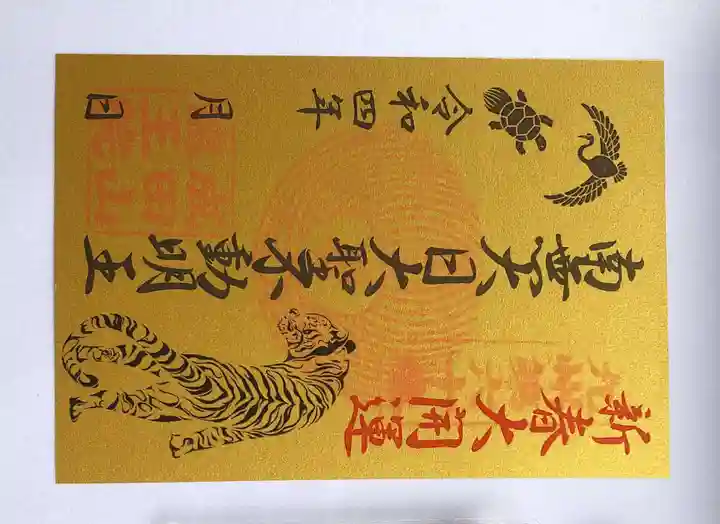 新春大開運
南無大日大聖不動明王
令和四年 月 日
成田山